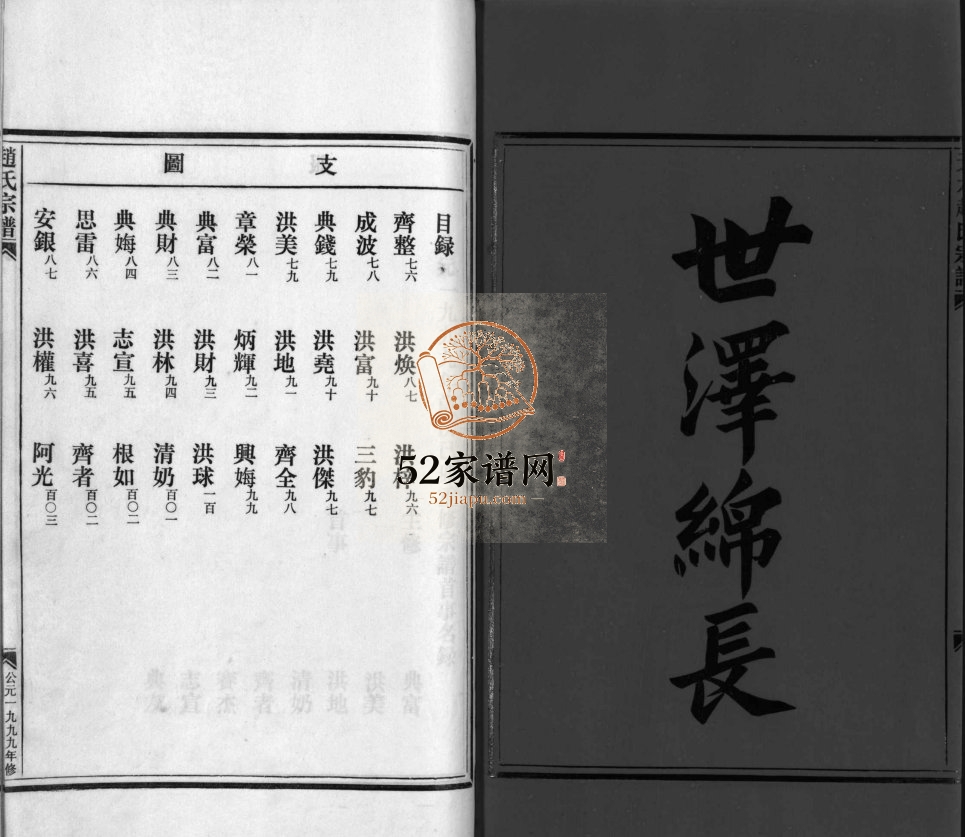 世澤綿長
趙氏宗譜
支圖
目録
齊整七六
洪煥八七
九六
成波七八
洪富九十
三豹九七
典錢七九
洪堯九十
洪傑九七
洪美七九
洪地九一
齊全九八
章榮八一
炳輝九二
興娒九九
典富八二
洪財九三
洪球一百
典財八三
洪林九四
清奶百〇一
典娒八四
志宣九五
根如百〇二
思雷八六
洪喜九五
齊者百〇二
安銀八七
洪權九六
阿光百〇三
公元一九九九年修
52家谱网